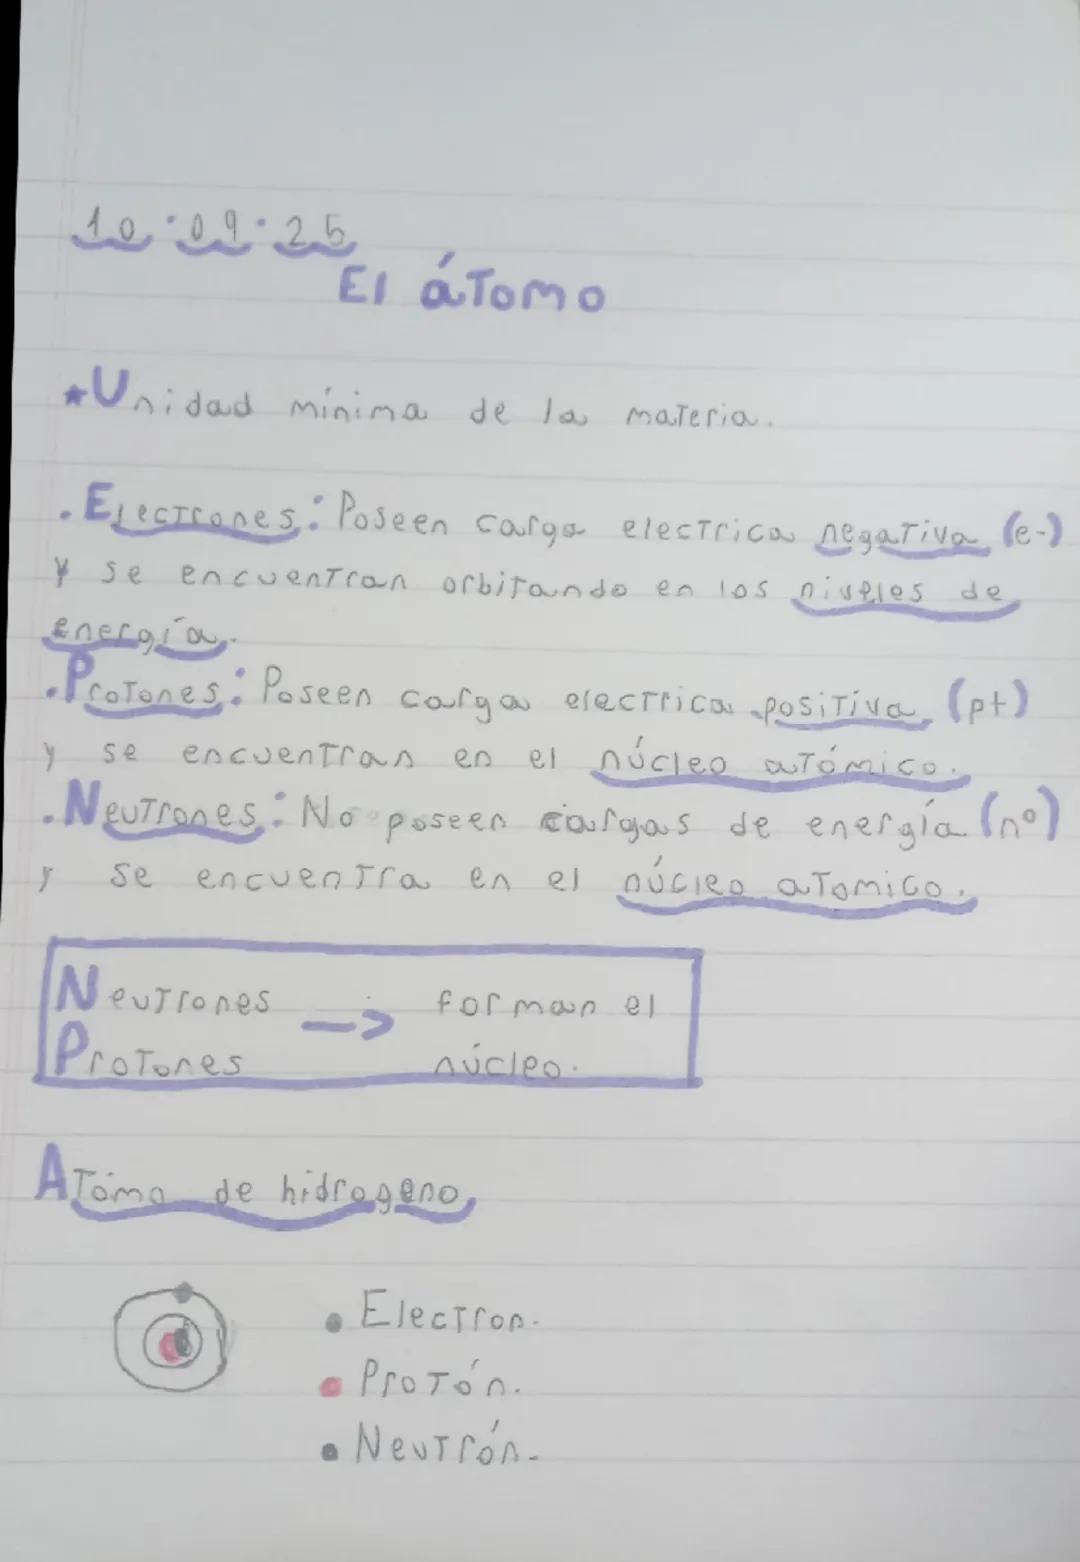 10·09·25
El átomo
*Unidad mínima de la materia.
.Electrones: Poseen carga electrica negativa (e-)
y se encuentran orbitando en los niveles de
energía.
.Protones: Poseen carga electrica positiva (p+)
y se encuentran en el núcleo atómico.
.Neutrones: No poseen cargas de energía (n°)
y se encuentra en el núcleo atomico.
Neutrones —> forman el
Protones núcleo.
Atómo de hidrogeno
• Electron.
• Protón.
• Neutrón.